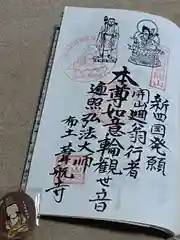 新四国発願
開山廻翁行者
本尊如意輪觀世音
遍照弘法大師
布土葦航寺